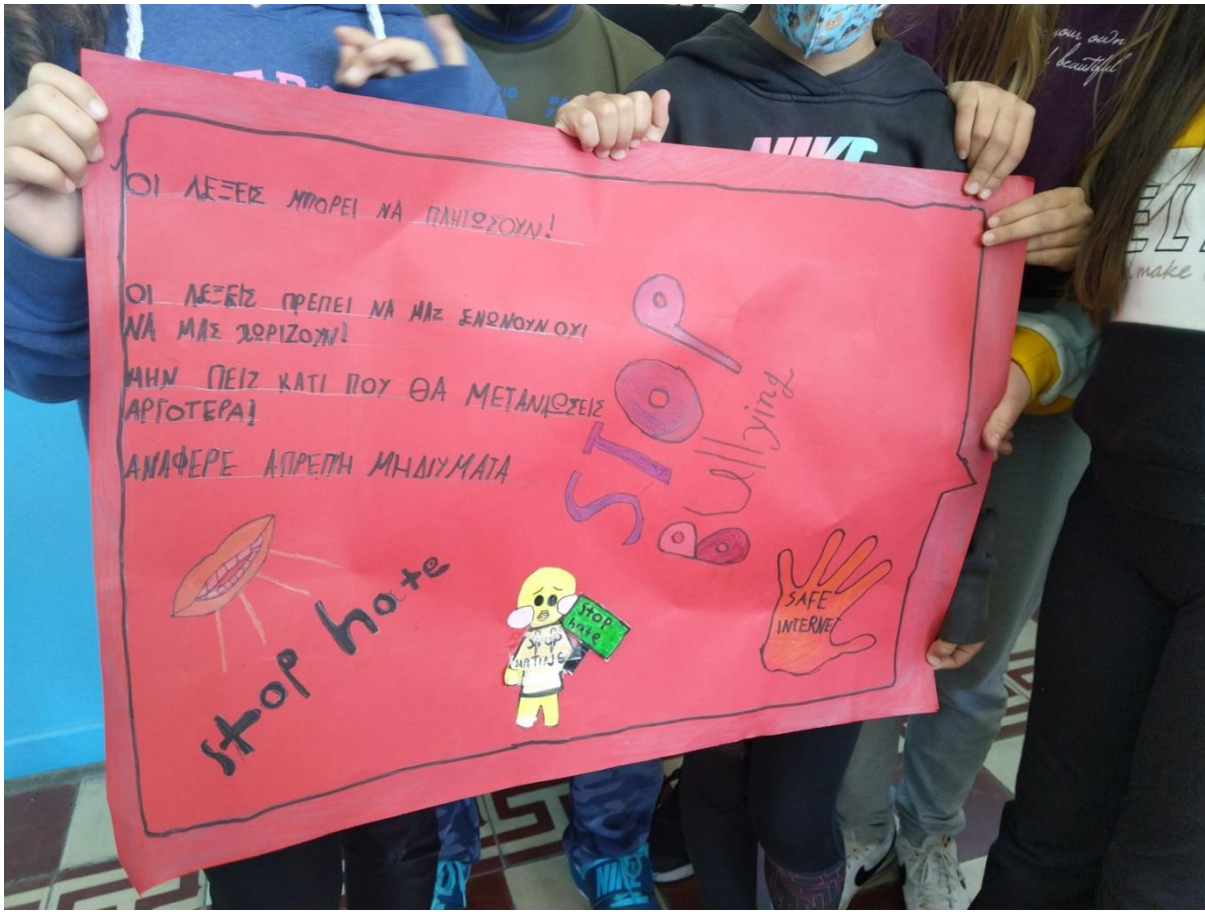 ΟΙ ΛΕΞΕΙΣ ΜΠΟΡΕΙ ΝΑ ΠΛΗΓΩΣΟΥΝ!
ΟΙ ΛΕΞΕΙΣ ΠΡΕΠΕΙ ΝΑ ΜΑΣ ΕΝΩΝΟΥΝ ΟΥΙ
ΝΑ ΜΑΣ ΧΩΡΙΖΟΥΝ!
ΜΗΝ ΠΕΙΣ ΚΑΤΙ ΠΟΥ ΘΑ ΜΕΤΑΝΙΩΣΕΙΣ
ΑΡΓΟΤΕΡΑ!
ΑΝΑΦΕΡΕ ΑΠΡΕΠΗ ΜΗΔΙΥΜΑΤΑ
STOP
BUllying
stop hate
stop
hate
STOP
HATING
SAFE
INTERNET
NIKE
your own
beautiful
make
NIKE